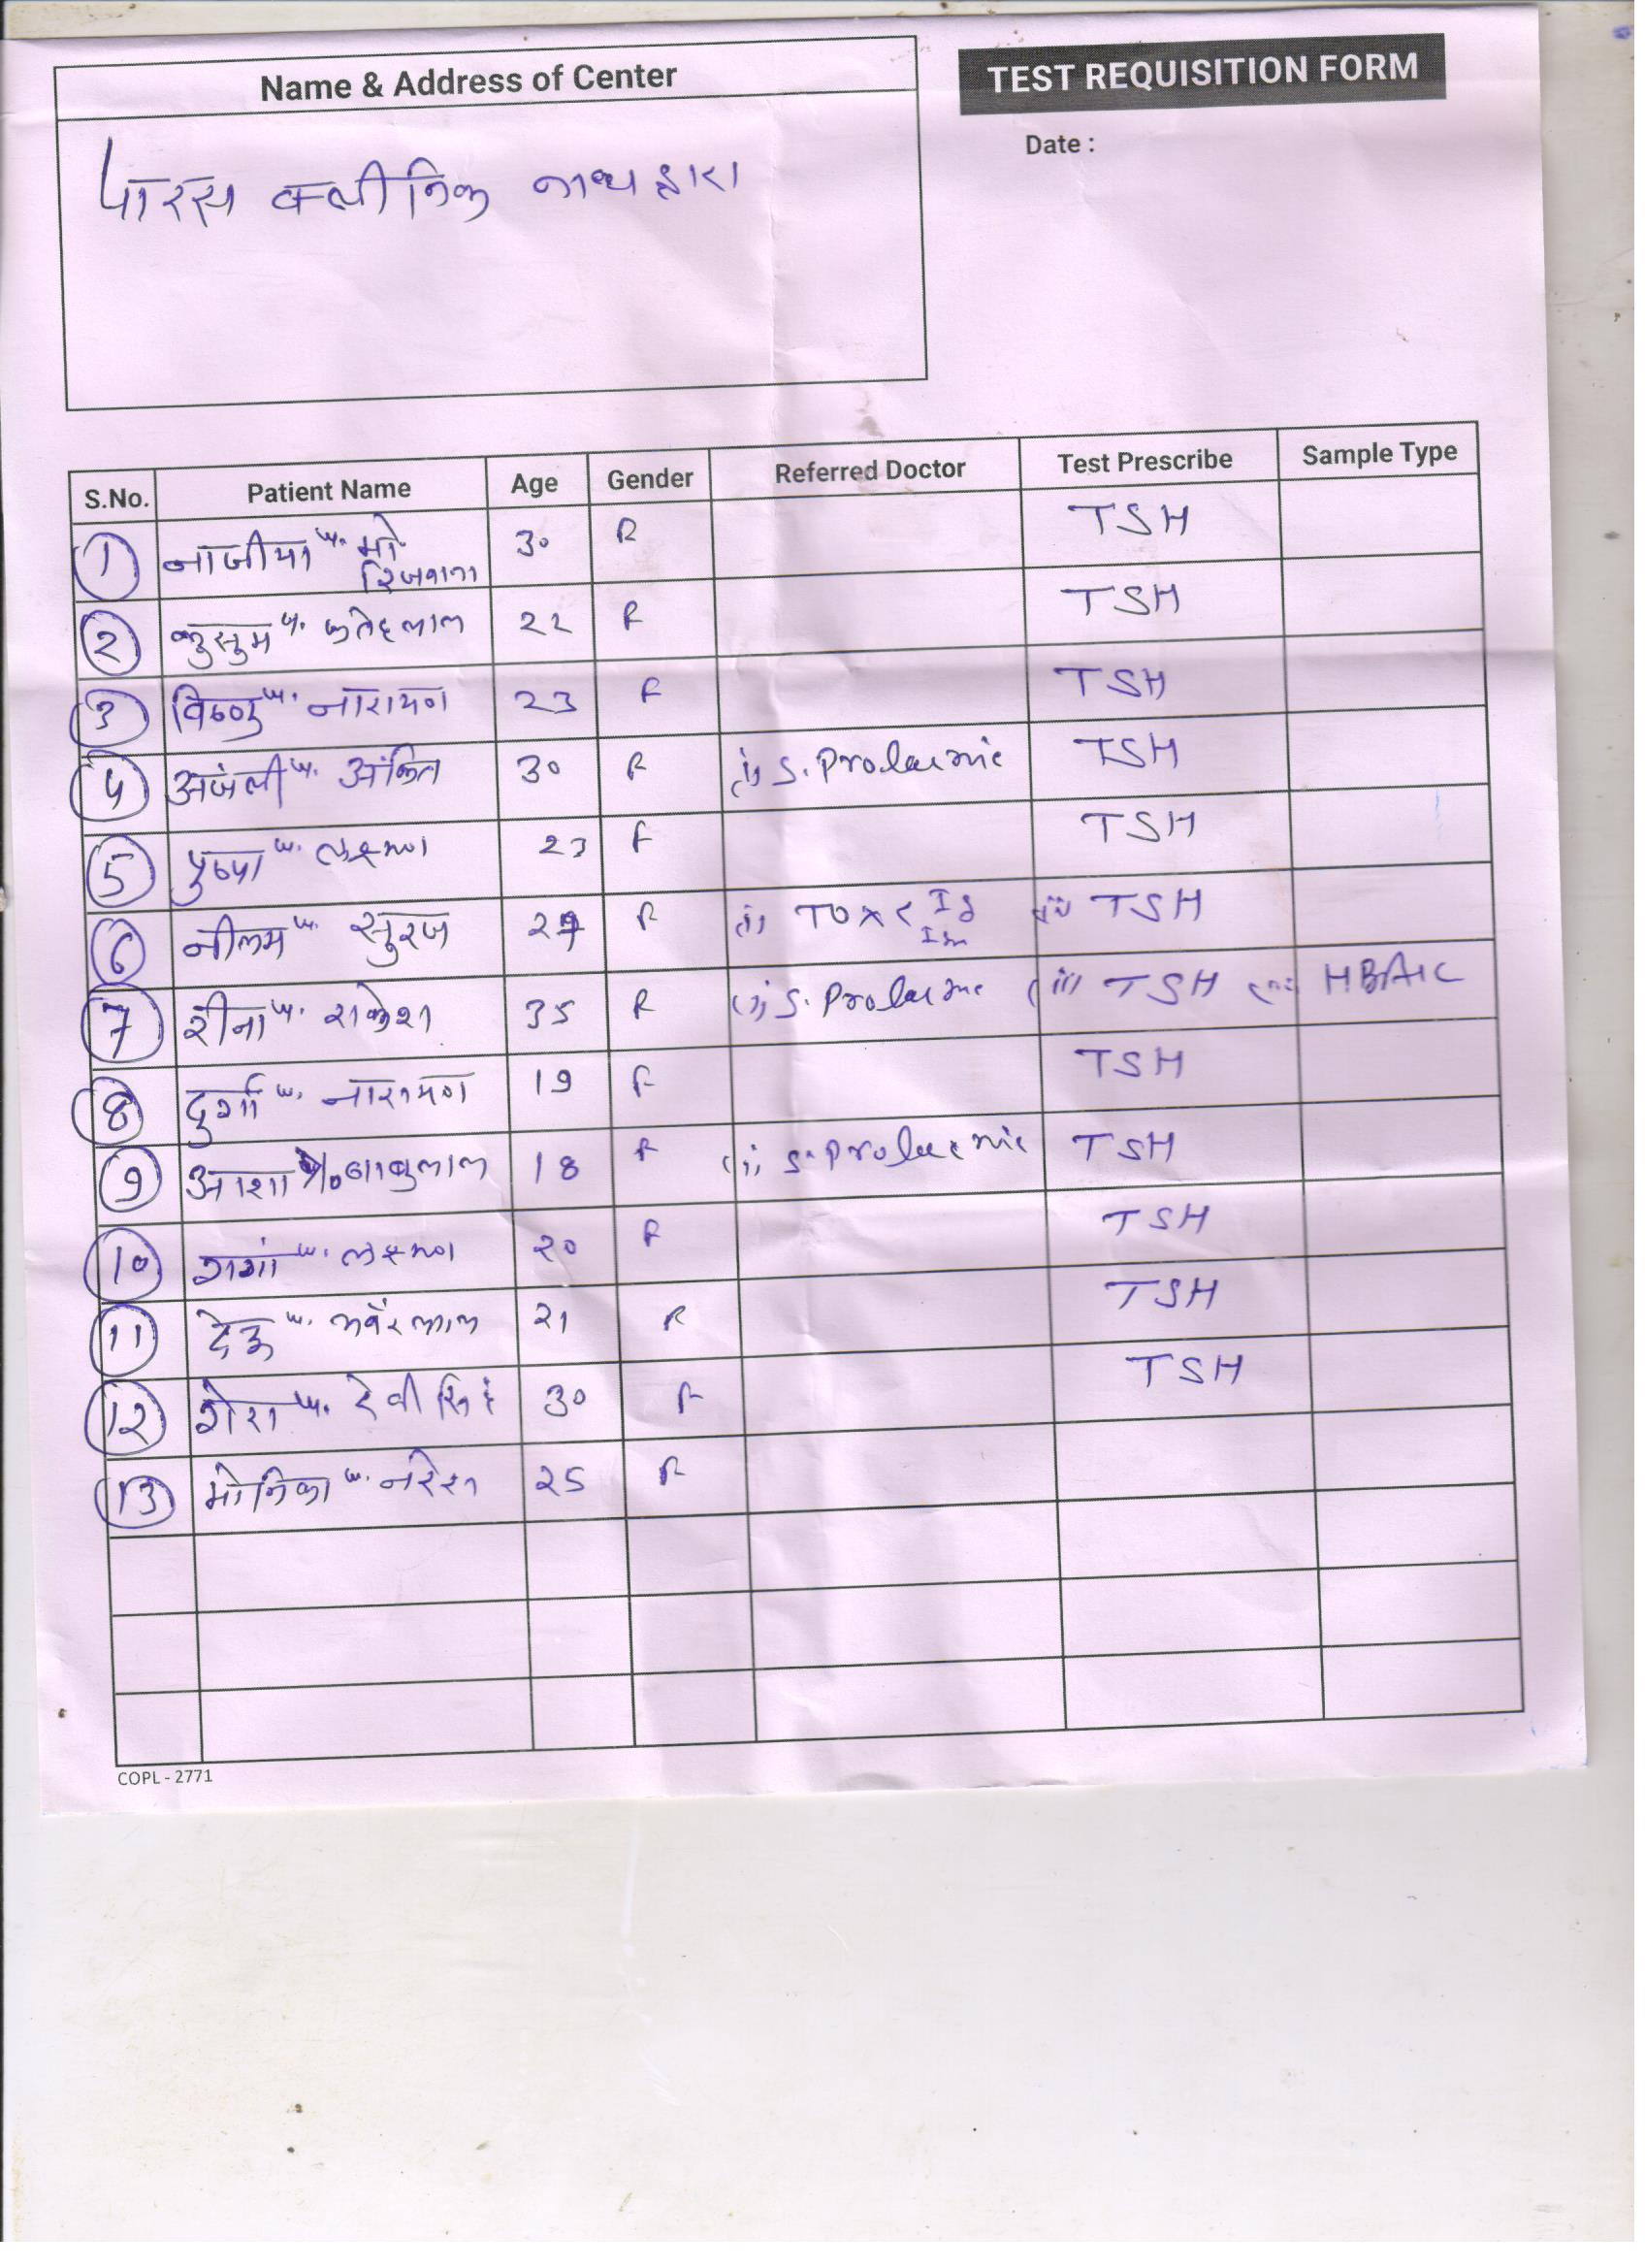 Name & Address of Center
TEST REQUISITION FORM
Date :
पारस क्लीनिक नाथद्वारा
S.No. Patient Name Age Gender Referred Doctor Test Prescribe Sample Type
1 नाजीया w. मो रिजवान 30 F TSH
2 कुसुम w. फतेहलाल 22 F TSH
3 विष्णु w. नारायण 23 F TSH
4 अंजली w. अंकित 30 F (i) S. Prolacnic TSH
5 पुष्पा w. लक्ष्मण 23 F TSH
6 नीलम w. सुरज 27 F (i) TOXC Ig Im (ii) TSH
7 रीना w. राकेश 35 F (i) S. Prolacnic (ii) TSH (iii) HBA1C
8 दुर्गा w. नारायण 19 F TSH
9 आशा बाबुलाल 18 F (i) S. Prolacnic TSH
10 गंगा w. लक्ष्मण 20 F TSH
11 देऊ w. भवंरलाल 21 F TSH
12 w. देवी सिंह 30 F TSH
13 मोनिका w. नरेश 25 F
COPL - 2771